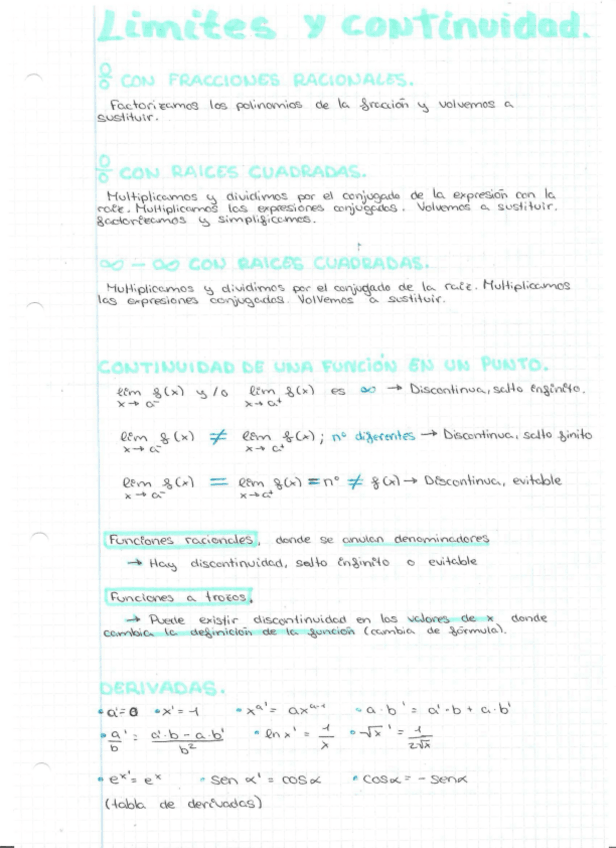 Limites y continuidad.
0/0 CON FRACCIONES RACIONALES.
Factorizamos los polinomios de la fracción y volvemos a
sustituir.
0/0 CON RAICES CUADRADAS.
Multiplicamos y dividimos por el conjugado de la expresión con la
raíz. Multiplicamos las expresiones conjugadas. Volvemos a sustituir.
factorizamos y simplificamos.
∞ - ∞ CON RAICES CUADRADAS.
Multiplicamos y dividimos por el conjugado de la raíz. Multiplicamos
las expresiones conjugadas. Volvemos a sustituir.
CONTINUIDAD DE UNA FUNCIÓN EN UN PUNTO.
lím f(x) y/o lím f(x) es ∞ → Discontinua, salto infinito.
x→a⁻ x→a⁺
lím f(x) ≠ lím f(x); nº diferentes → Discontinua, salto finito
x→a⁻ x→a⁺
lím f(x) = lím f(x) = nº ≠ f(a) → Discontinua, evitable
x→a⁻ x→a⁺
Funciones racionales, donde se anulan denominadores
→ Hay discontinuidad, salto infinito o evitable
Funciones a trozos.
→ Puede existir discontinuidad en los valores de x donde
cambia la definición de la función (cambia de fórmula).
DERIVADAS.
• a' = 0 • x' = 1 • xᵃ' = axᵃ⁻¹ • a·b' = a'·b + a·b'
• a/b ' = a'·b - a·b' / b² • ln x' = 1/x • √x' = 1/2√x
• eˣ' = eˣ • sen α' = cos α • cos α = - sen α
(tabla de derivadas)